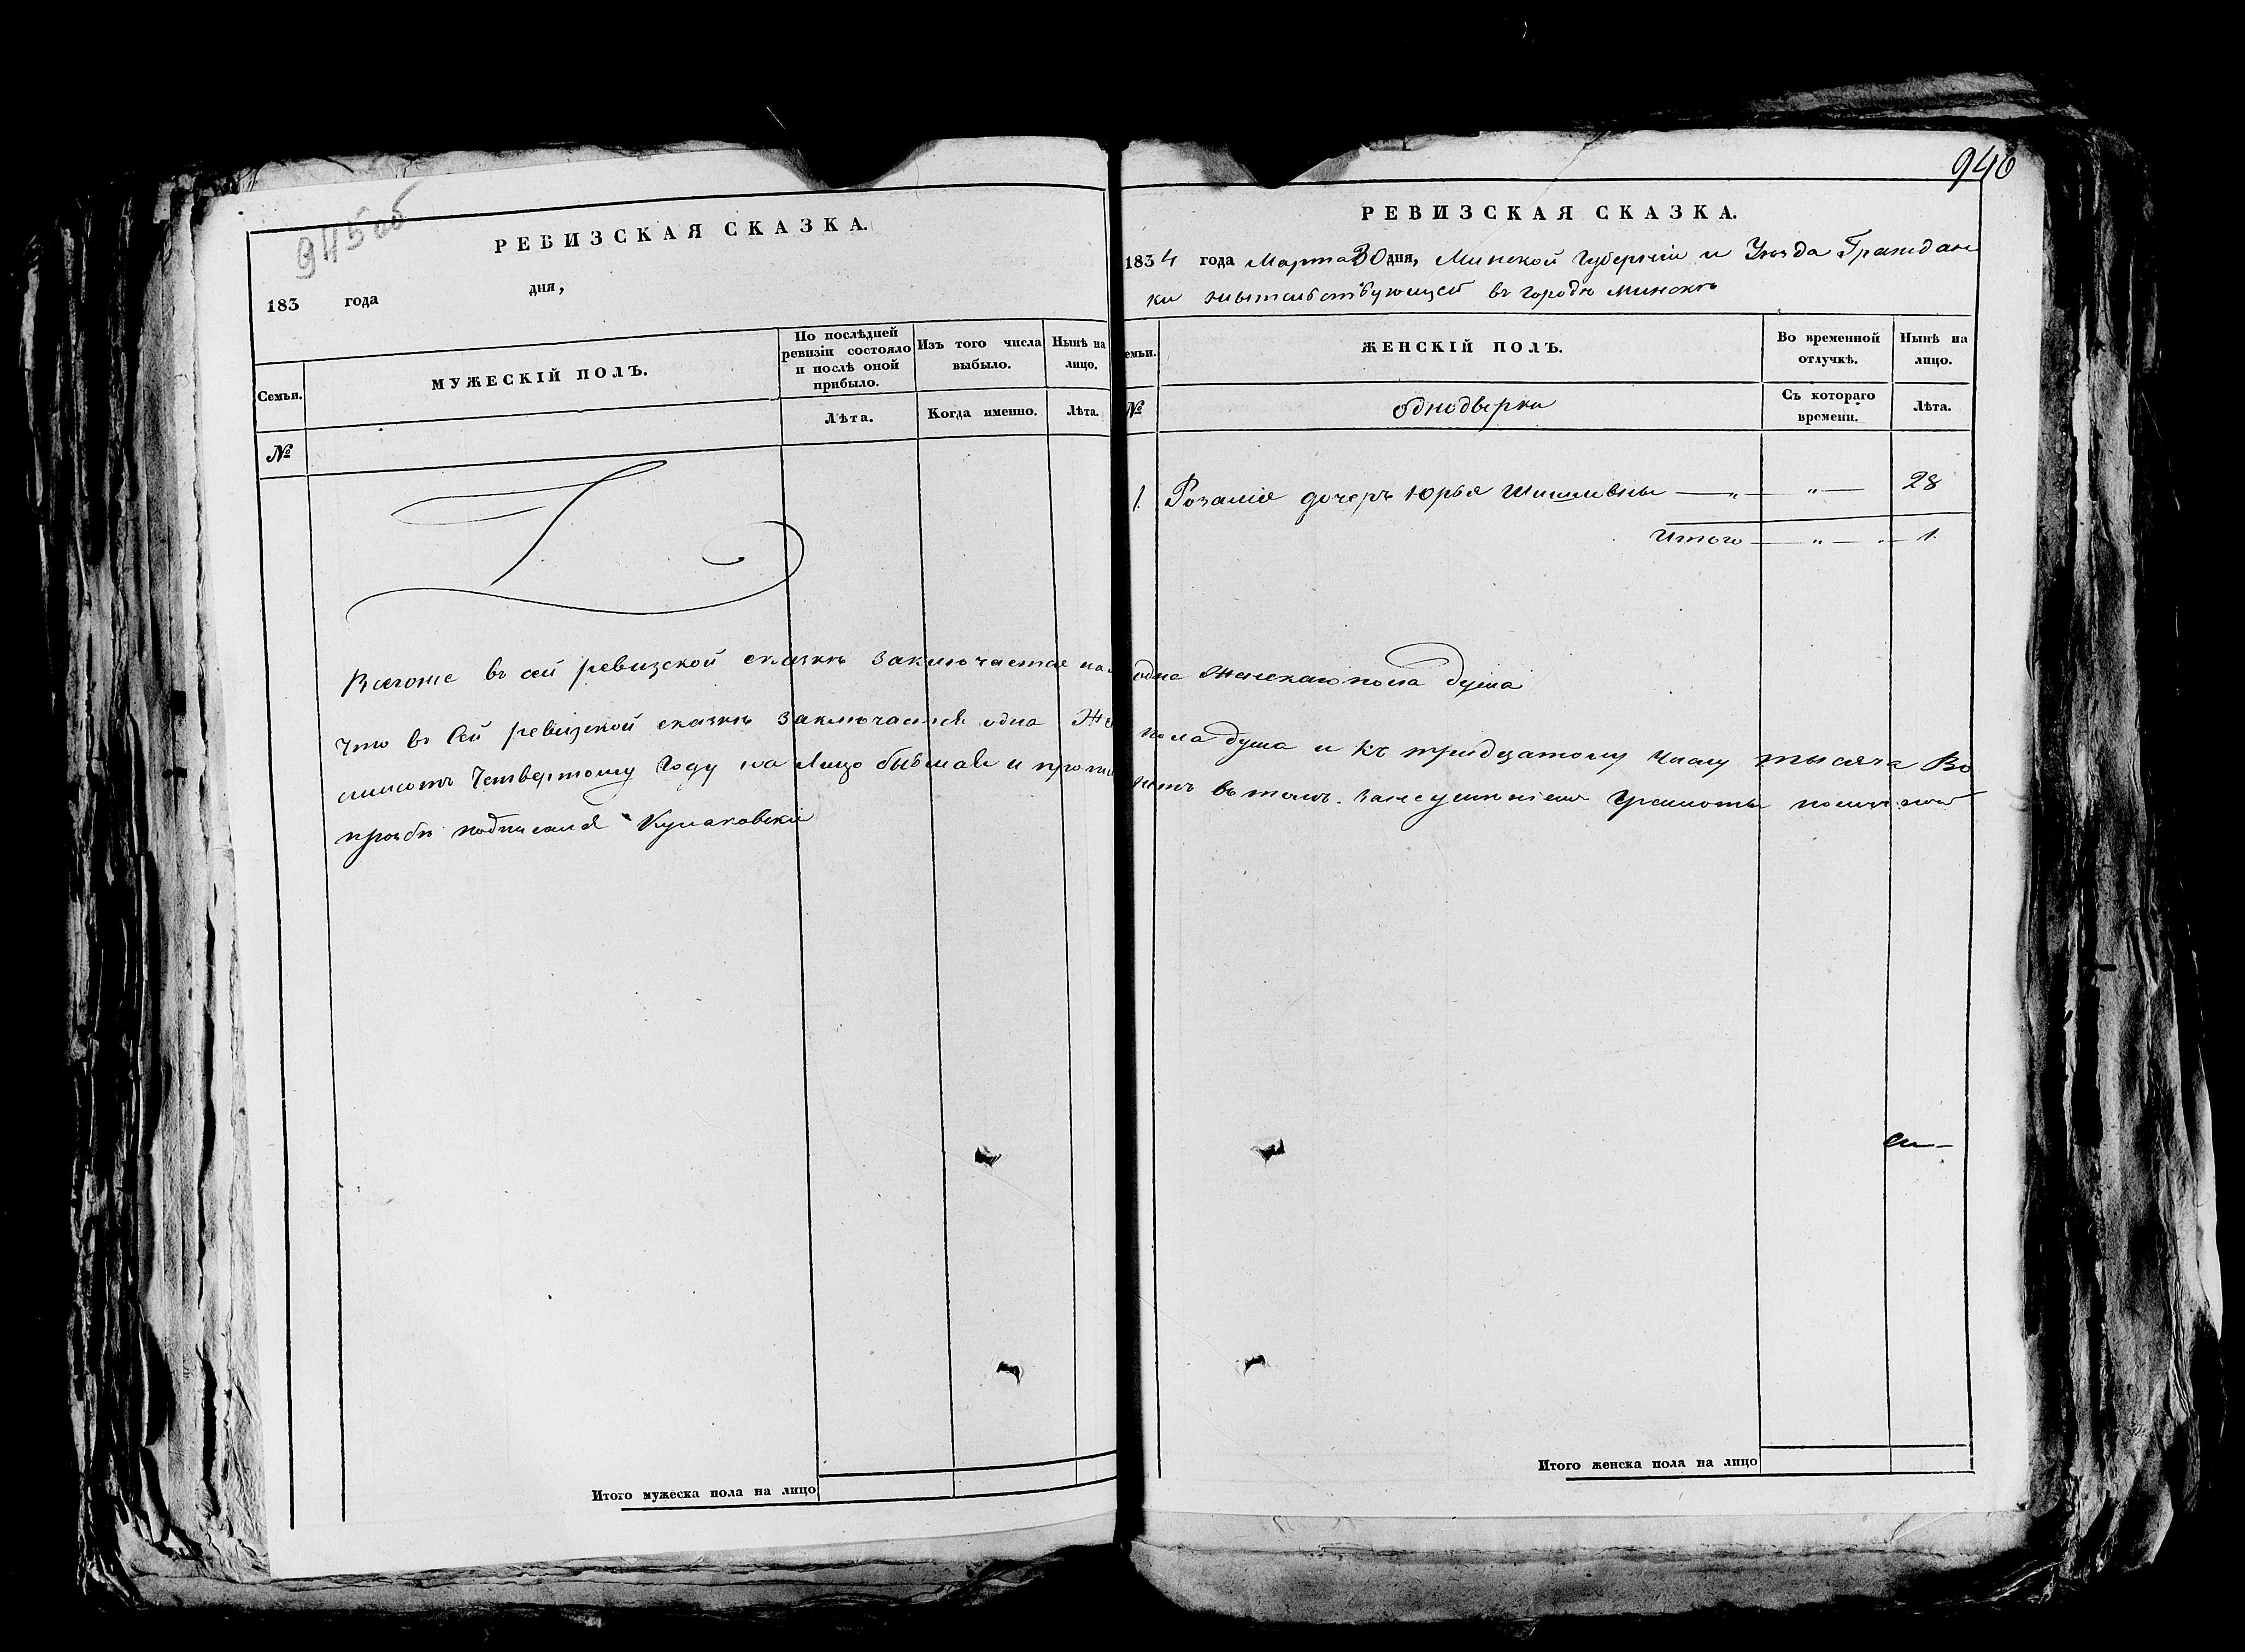 945об
РЕВИЗСКАЯ СКАЗКА.
183 года дня,
Семьи.
МУЖЕСКІЙ ПОЛЪ.
По послѣдней ревизіи состояло и послѣ оной прибыло.
Изъ того числа выбыло.
Нынѣ на лицо.
№
Лѣта.
Когда именно.
Лѣта.
Всего же въ сей ревизской сказкѣ заключается
Что въ сей ревизской сказкѣ заключается одна Же
четвертому году на лицо бывшая и
прозбѣ подписался Кулаковски
Итого мужеска пола на лицо
946
РЕВИЗСКАЯ СКАЗКА.
1834 года Марта 30 дня, Минской Губерніи и Уѣзда Граждан
ки жытельствующей въ городѣ Минскѣ
емьи.
ЖЕНСКІЙ ПОЛЪ.
Во временной отлучкѣ.
Нынѣ на лицо.
№
однодворки
Съ котораго времени.
Лѣта.
1. Розалія дочерь Юрья — „ — „ — 28
Итого — „ — „ — 1.
одна Женскаго пола душа
пола душа и къ тридцатому числу тысяча Во
въ томъ. грамоты
Итого женска пола на лицо